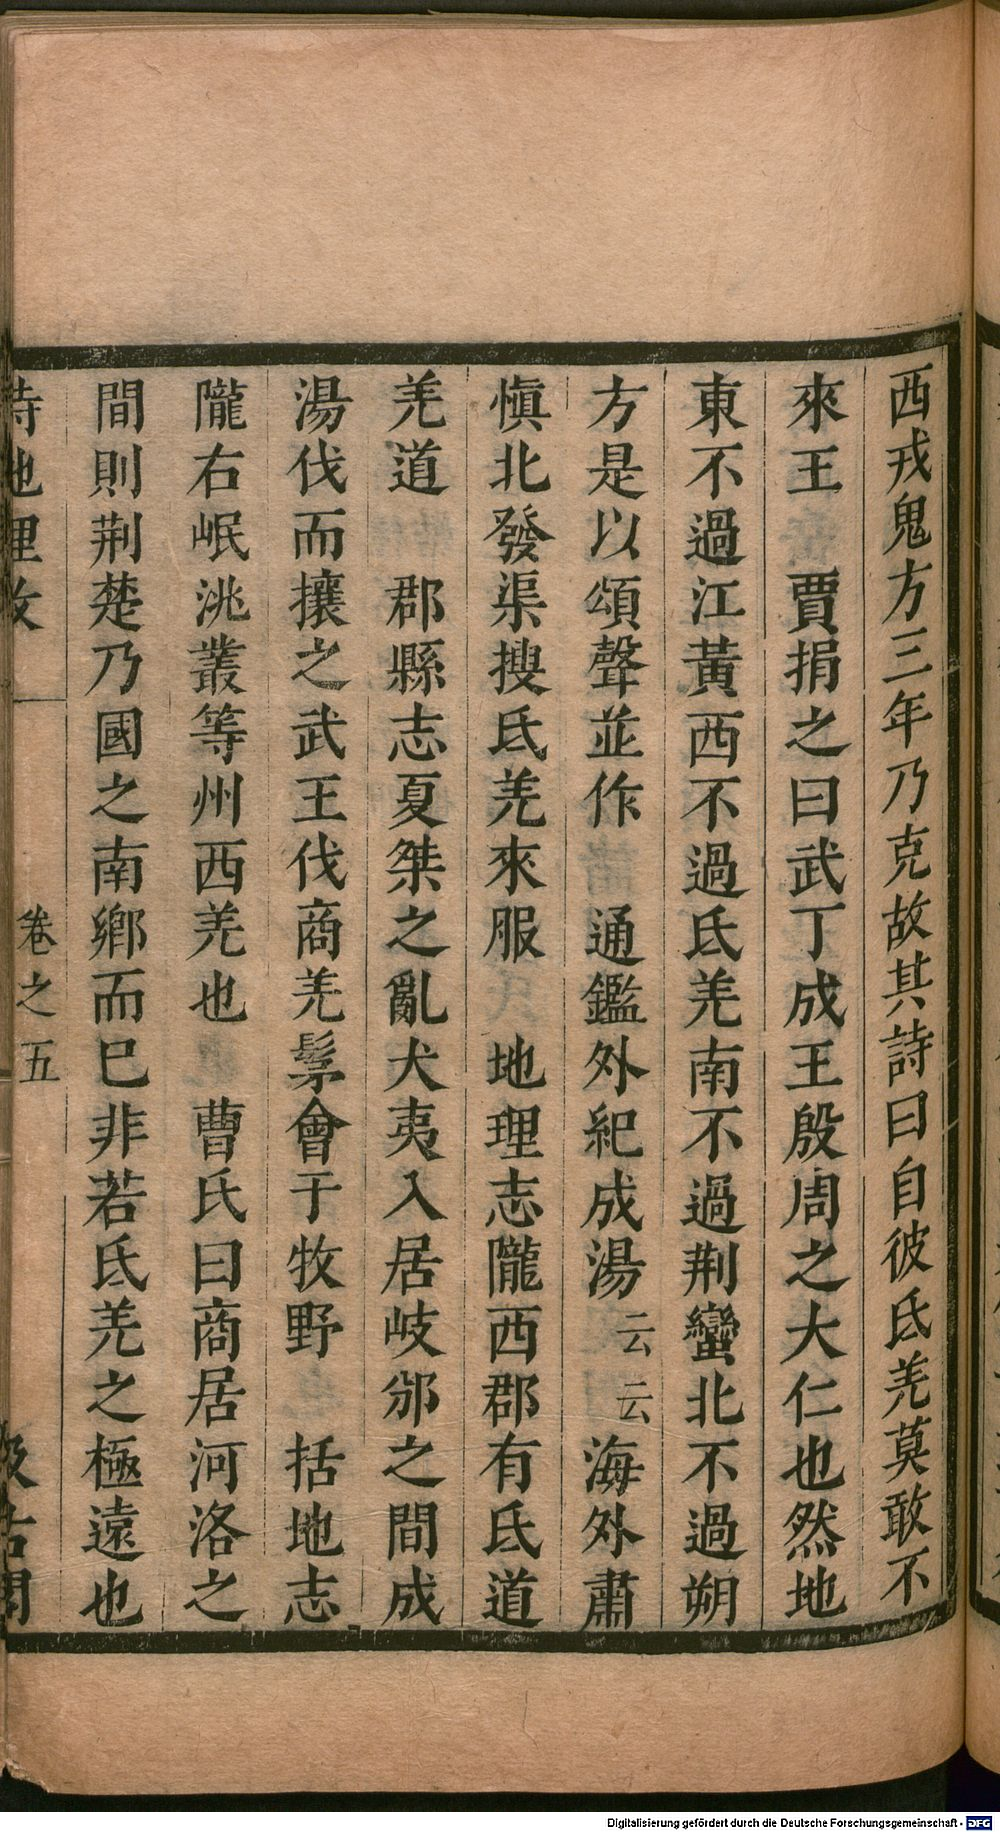 西戎鬼方三年乃克故其詩曰自彼氐羌莫敢不
來王　賈捐之曰武丁成王殷周之大仁也然地
東不過江黃西不過氐羌南不過荆蠻北不過朔
方是以頌聲並作　通鑑外紀成湯云云海外肅
愼北發渠搜氐羌來服　地理志隴西郡有氐道
羌道　郡縣志夏桀之亂犬夷入居岐邠之間成
湯伐而攘之武王伐商羌髳會于牧野　括地志
隴右岷洮叢等州西羌也　曹氏曰商居河洛之
間則荆楚乃國之南鄉而巳非若氐羌之極遠也
詩地理攷　卷之五　汲古閣
Digitalisierung gefördert durch die Deutsche Forschungsgemeinschaft - DFG